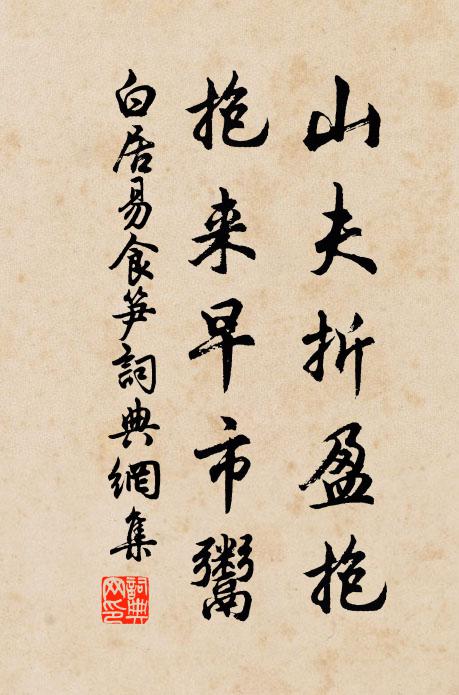 山夫折盈抱
抱来早市鬻
白居易食笋詞典網集
詞典網印